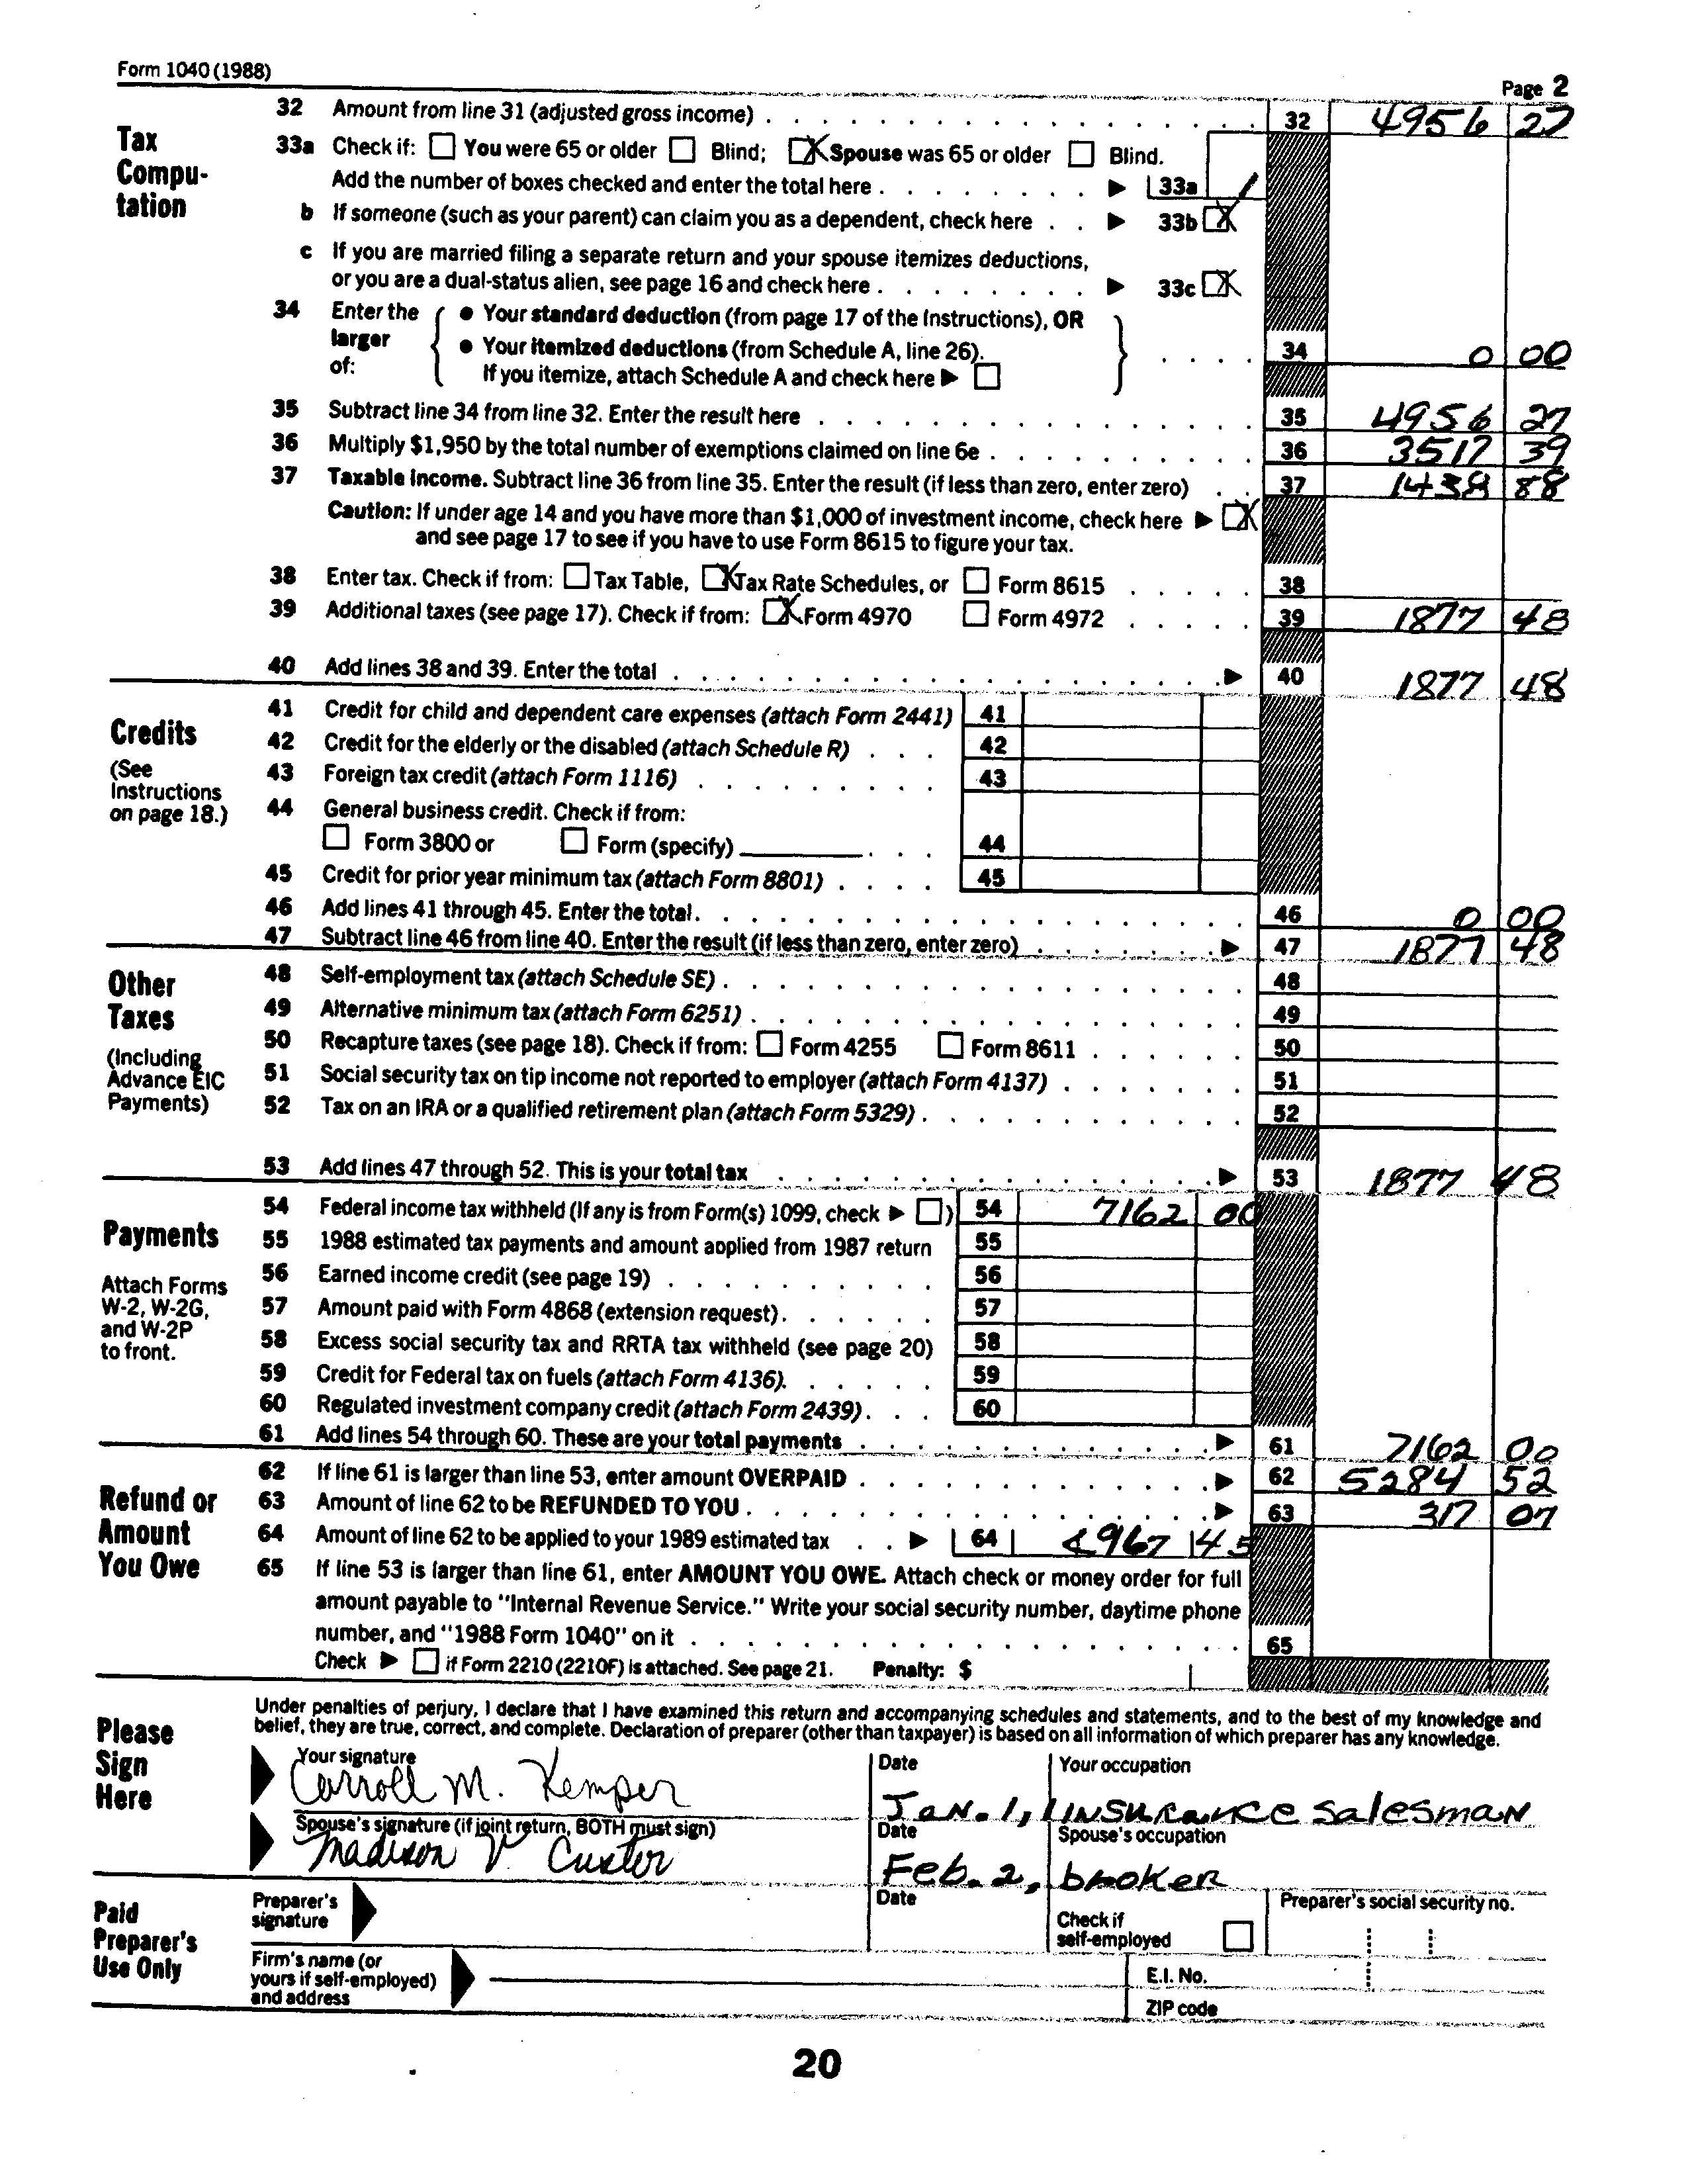 Form 1040 (1988)
Page 2
Tax Computation
32 Amount from line 31 (adjusted gross income) . . . 32 4956 27
33a Check if: ☐ You were 65 or older ☐ Blind; ☒ Spouse was 65 or older ☐ Blind.
Add the number of boxes checked and enter the total here . . . ▶ 33a 1
b If someone (such as your parent) can claim you as a dependent, check here . . ▶ 33b ☒
c If you are married filing a separate return and your spouse itemizes deductions,
or you are a dual-status alien, see page 16 and check here . . . ▶ 33c ☒
34 Enter the larger of: { ● Your standard deduction (from page 17 of the Instructions), OR
● Your itemized deductions (from Schedule A, line 26).
If you itemize, attach Schedule A and check here ▶ ☐ } . . . . 34 0 00
35 Subtract line 34 from line 32. Enter the result here . . . 35 4956 27
36 Multiply $1,950 by the total number of exemptions claimed on line 6e . . . 36 3517 39
37 Taxable income. Subtract line 36 from line 35. Enter the result (if less than zero, enter zero) . . 37 1438 88
Caution: If under age 14 and you have more than $1,000 of investment income, check here ▶ ☒
and see page 17 to see if you have to use Form 8615 to figure your tax.
38 Enter tax. Check if from: ☐ Tax Table, ☒ Tax Rate Schedules, or ☐ Form 8615 . . . 38
39 Additional taxes (see page 17). Check if from: ☒ Form 4970 ☐ Form 4972 . . . 39 1877 48
40 Add lines 38 and 39. Enter the total . . . ▶ 40 1877 48
Credits
(See Instructions on page 18.)
41 Credit for child and dependent care expenses (attach Form 2441) 41
42 Credit for the elderly or the disabled (attach Schedule R) . . . 42
43 Foreign tax credit (attach Form 1116) . . . 43
44 General business credit. Check if from:
☐ Form 3800 or ☐ Form (specify) ______ . . . 44
45 Credit for prior year minimum tax (attach Form 8801) . . . . 45
46 Add lines 41 through 45. Enter the total . . . 46 0 00
47 Subtract line 46 from line 40. Enter the result (if less than zero, enter zero) . . . ▶ 47 1877 48
Other Taxes
(Including Advance EIC Payments)
48 Self-employment tax (attach Schedule SE) . . . 48
49 Alternative minimum tax (attach Form 6251) . . . 49
50 Recapture taxes (see page 18). Check if from: ☐ Form 4255 ☐ Form 8611 . . . 50
51 Social security tax on tip income not reported to employer (attach Form 4137) . . . 51
52 Tax on an IRA or a qualified retirement plan (attach Form 5329) . . . 52
53 Add lines 47 through 52. This is your total tax . . . ▶ 53 1877 48
Payments
Attach Forms W-2, W-2G, and W-2P to front.
54 Federal income tax withheld (If any is from Form(s) 1099, check ▶ ☐) 54 7162 00
55 1988 estimated tax payments and amount applied from 1987 return 55
56 Earned income credit (see page 19) . . . 56
57 Amount paid with Form 4868 (extension request) . . . 57
58 Excess social security tax and RRTA tax withheld (see page 20) 58
59 Credit for Federal tax on fuels (attach Form 4136) . . . 59
60 Regulated investment company credit (attach Form 2439) . . . 60
61 Add lines 54 through 60. These are your total payments . . . ▶ 61 7162 00
Refund or Amount You Owe
62 If line 61 is larger than line 53, enter amount OVERPAID . . . ▶ 62 5284 52
63 Amount of line 62 to be REFUNDED TO YOU . . . ▶ 63 317 07
64 Amount of line 62 to be applied to your 1989 estimated tax . . ▶ 64 4967 45
65 If line 53 is larger than line 61, enter AMOUNT YOU OWE. Attach check or money order for full
amount payable to "Internal Revenue Service." Write your social security number, daytime phone
number, and "1988 Form 1040" on it . . . 65
Check ▶ ☐ if Form 2210 (2210F) is attached. See page 21. Penalty: $
Please Sign Here
Under penalties of perjury, I declare that I have examined this return and accompanying schedules and statements, and to the best of my knowledge and
belief, they are true, correct, and complete. Declaration of preparer (other than taxpayer) is based on all information of which preparer has any knowledge.
Your signature Date Your occupation
Carroll M. Kemper Jan. 1, insurance salesman
Spouse's signature (if joint return, BOTH must sign) Date Spouse's occupation
Madison V. Custer Feb. 2, broker
Paid Preparer's Use Only
Preparer's signature Date Check if self-employed ☐ Preparer's social security no.
Firm's name (or yours if self-employed) and address
E.I. No.
ZIP code
20